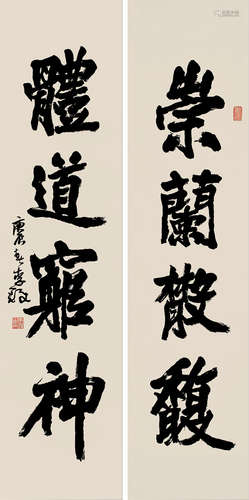 崇蘭散馥
體道窮神